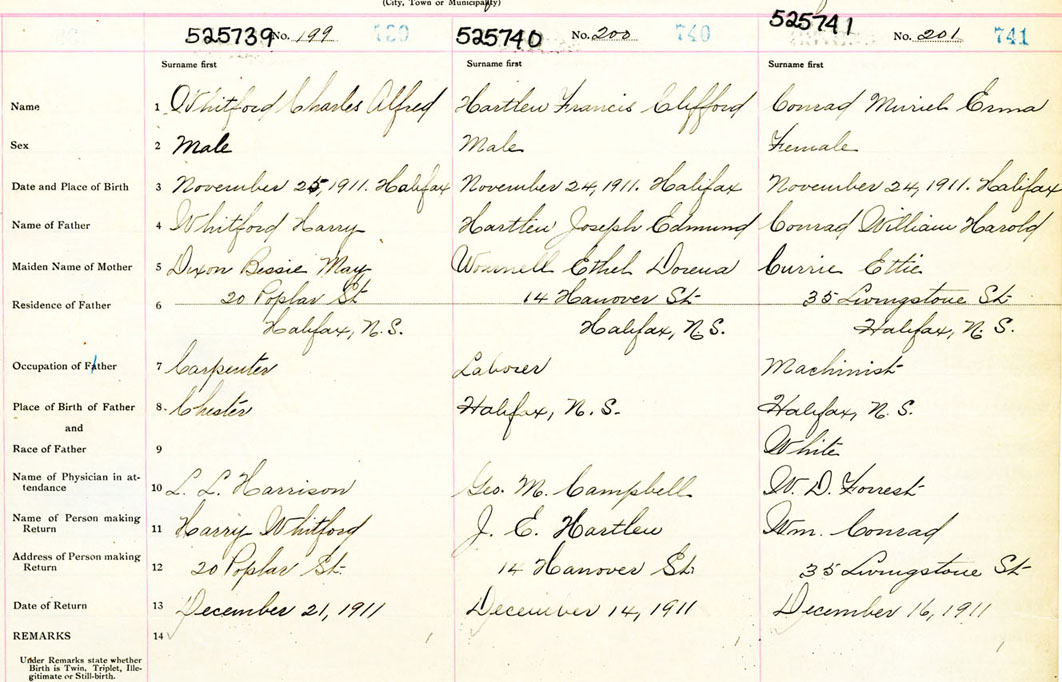 (City, Town or Municipality)
525739 No. 199 525740 No. 200 740 525741 No. 201 741
Surname first Surname first Surname first
Name 1 Whitford Charles Alfred Hartlen Francis Clifford Conrad Muriel Erma
Sex 2 Male Male Female
Date and Place of Birth 3 November 25, 1911. Halifax November 24, 1911. Halifax November 24, 1911. Halifax
Name of Father 4 Whitford Harry Hartlen Joseph Edmund Conrad William Harold
Maiden Name of Mother 5 Dixon Bessie May Ethel Dorena Currie Ettie
Residence of Father 6 20 Poplar St 14 Hanover St 35 Livingstone St
Halifax, N.S. Halifax, N.S. Halifax, N.S.
Occupation of Father 7 Carpenter Laborer Machinist
Place of Birth of Father 8. Chester Halifax, N.S. Halifax, N.S.
and
Race of Father 9 White
Name of Physician in at-
tendance 10 L. L. Harrison Geo. M. Campbell W. D. Forrest
Name of Person making
Return 11 Harry Whitford J. E. Hartlen Wm. Conrad
Address of Person making
Return 12 20 Poplar St. 14 Hanover St. 35 Livingstone St
Date of Return 13 December 21, 1911 December 14, 1911 December 16, 1911
REMARKS 14
Under Remarks state whether
Birth is Twin, Triplet, Ille-
gitimate or Still-birth.